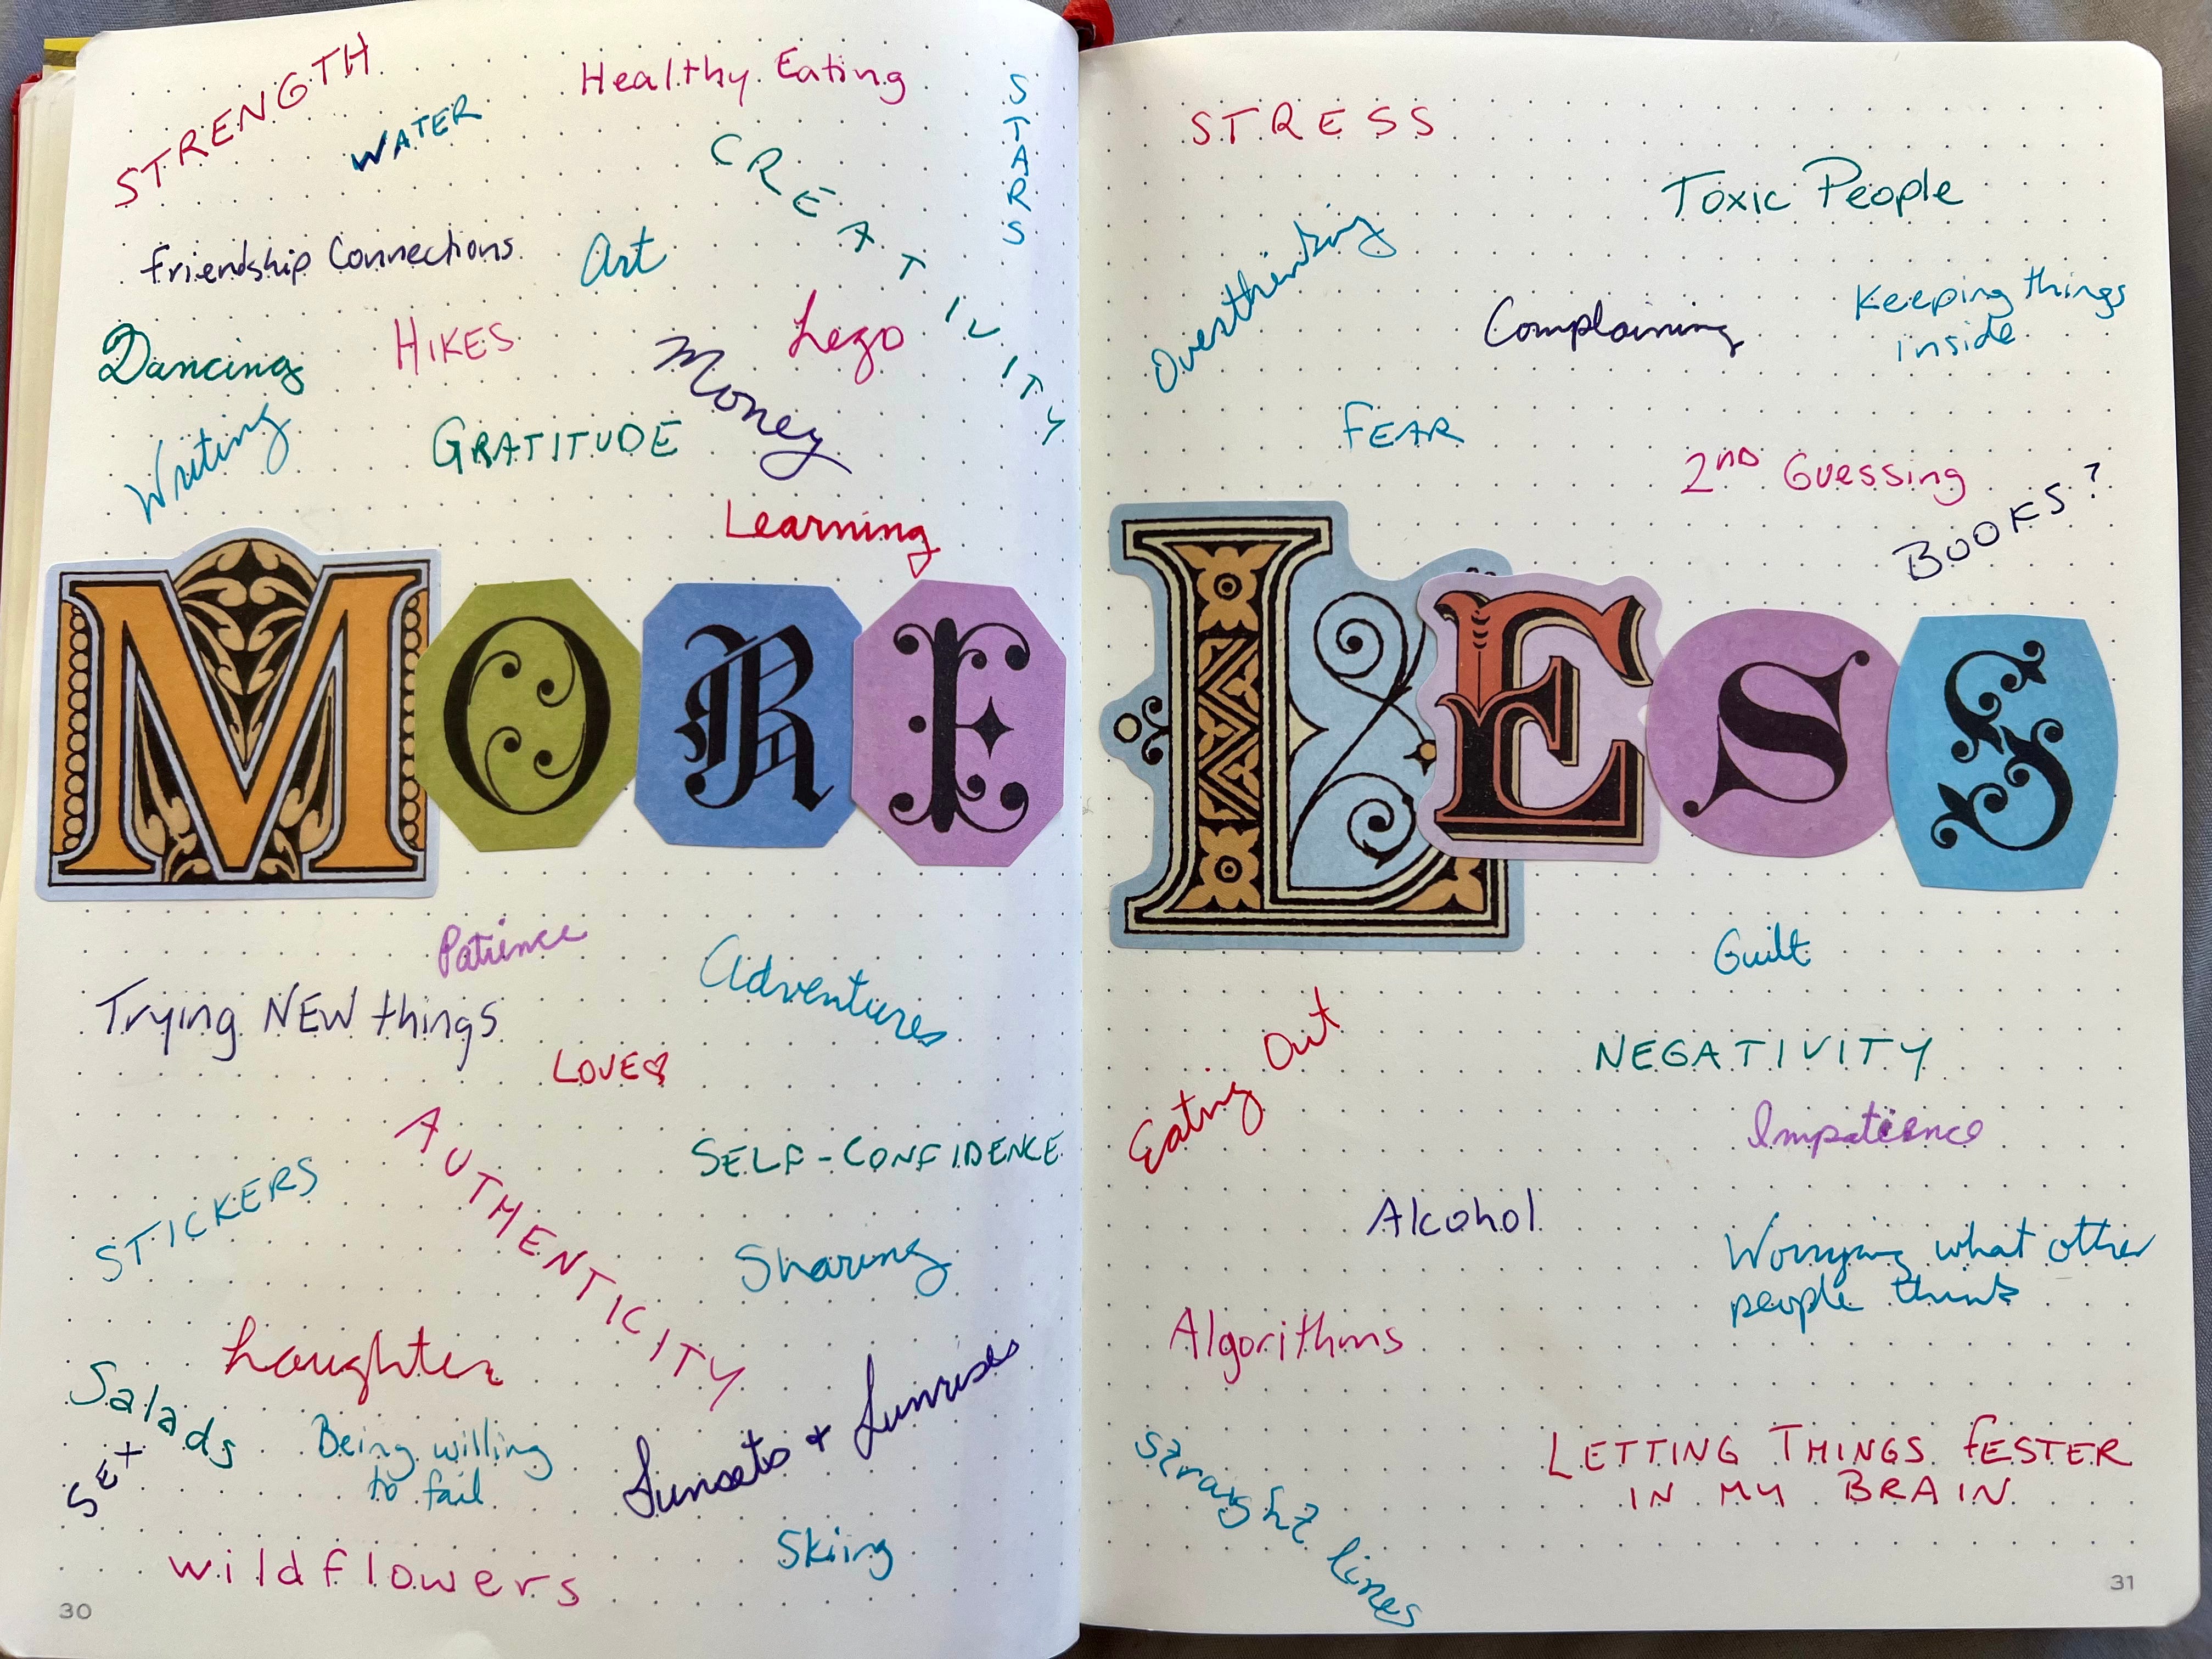 STRENGTH
WATER
Healthy Eating
STARS
CREATIVITY
friendship Connections
Art
Dancing
HIKES
Money
Lego
Writing
GRATITUDE
Learning
MORE
Patience
Adventures
Trying NEW things
LOVE
AUTHENTICITY
SELF-CONFIDENCE
STICKERS
Sharing
Laughter
Salads
SEX
Being willing
to fail
Sunsets + Sunrises
Skiing
wildflowers
30
STRESS
Toxic People
Overthinking
Complaining
Keeping things
inside
FEAR
2ND Guessing
BOOKS?
LESS
Guilt
Eating Out
NEGATIVITY
Impatience
Alcohol
Worrying what other
people think
Algorithms
Straight lines
LETTING THINGS FESTER
IN MY BRAIN
31